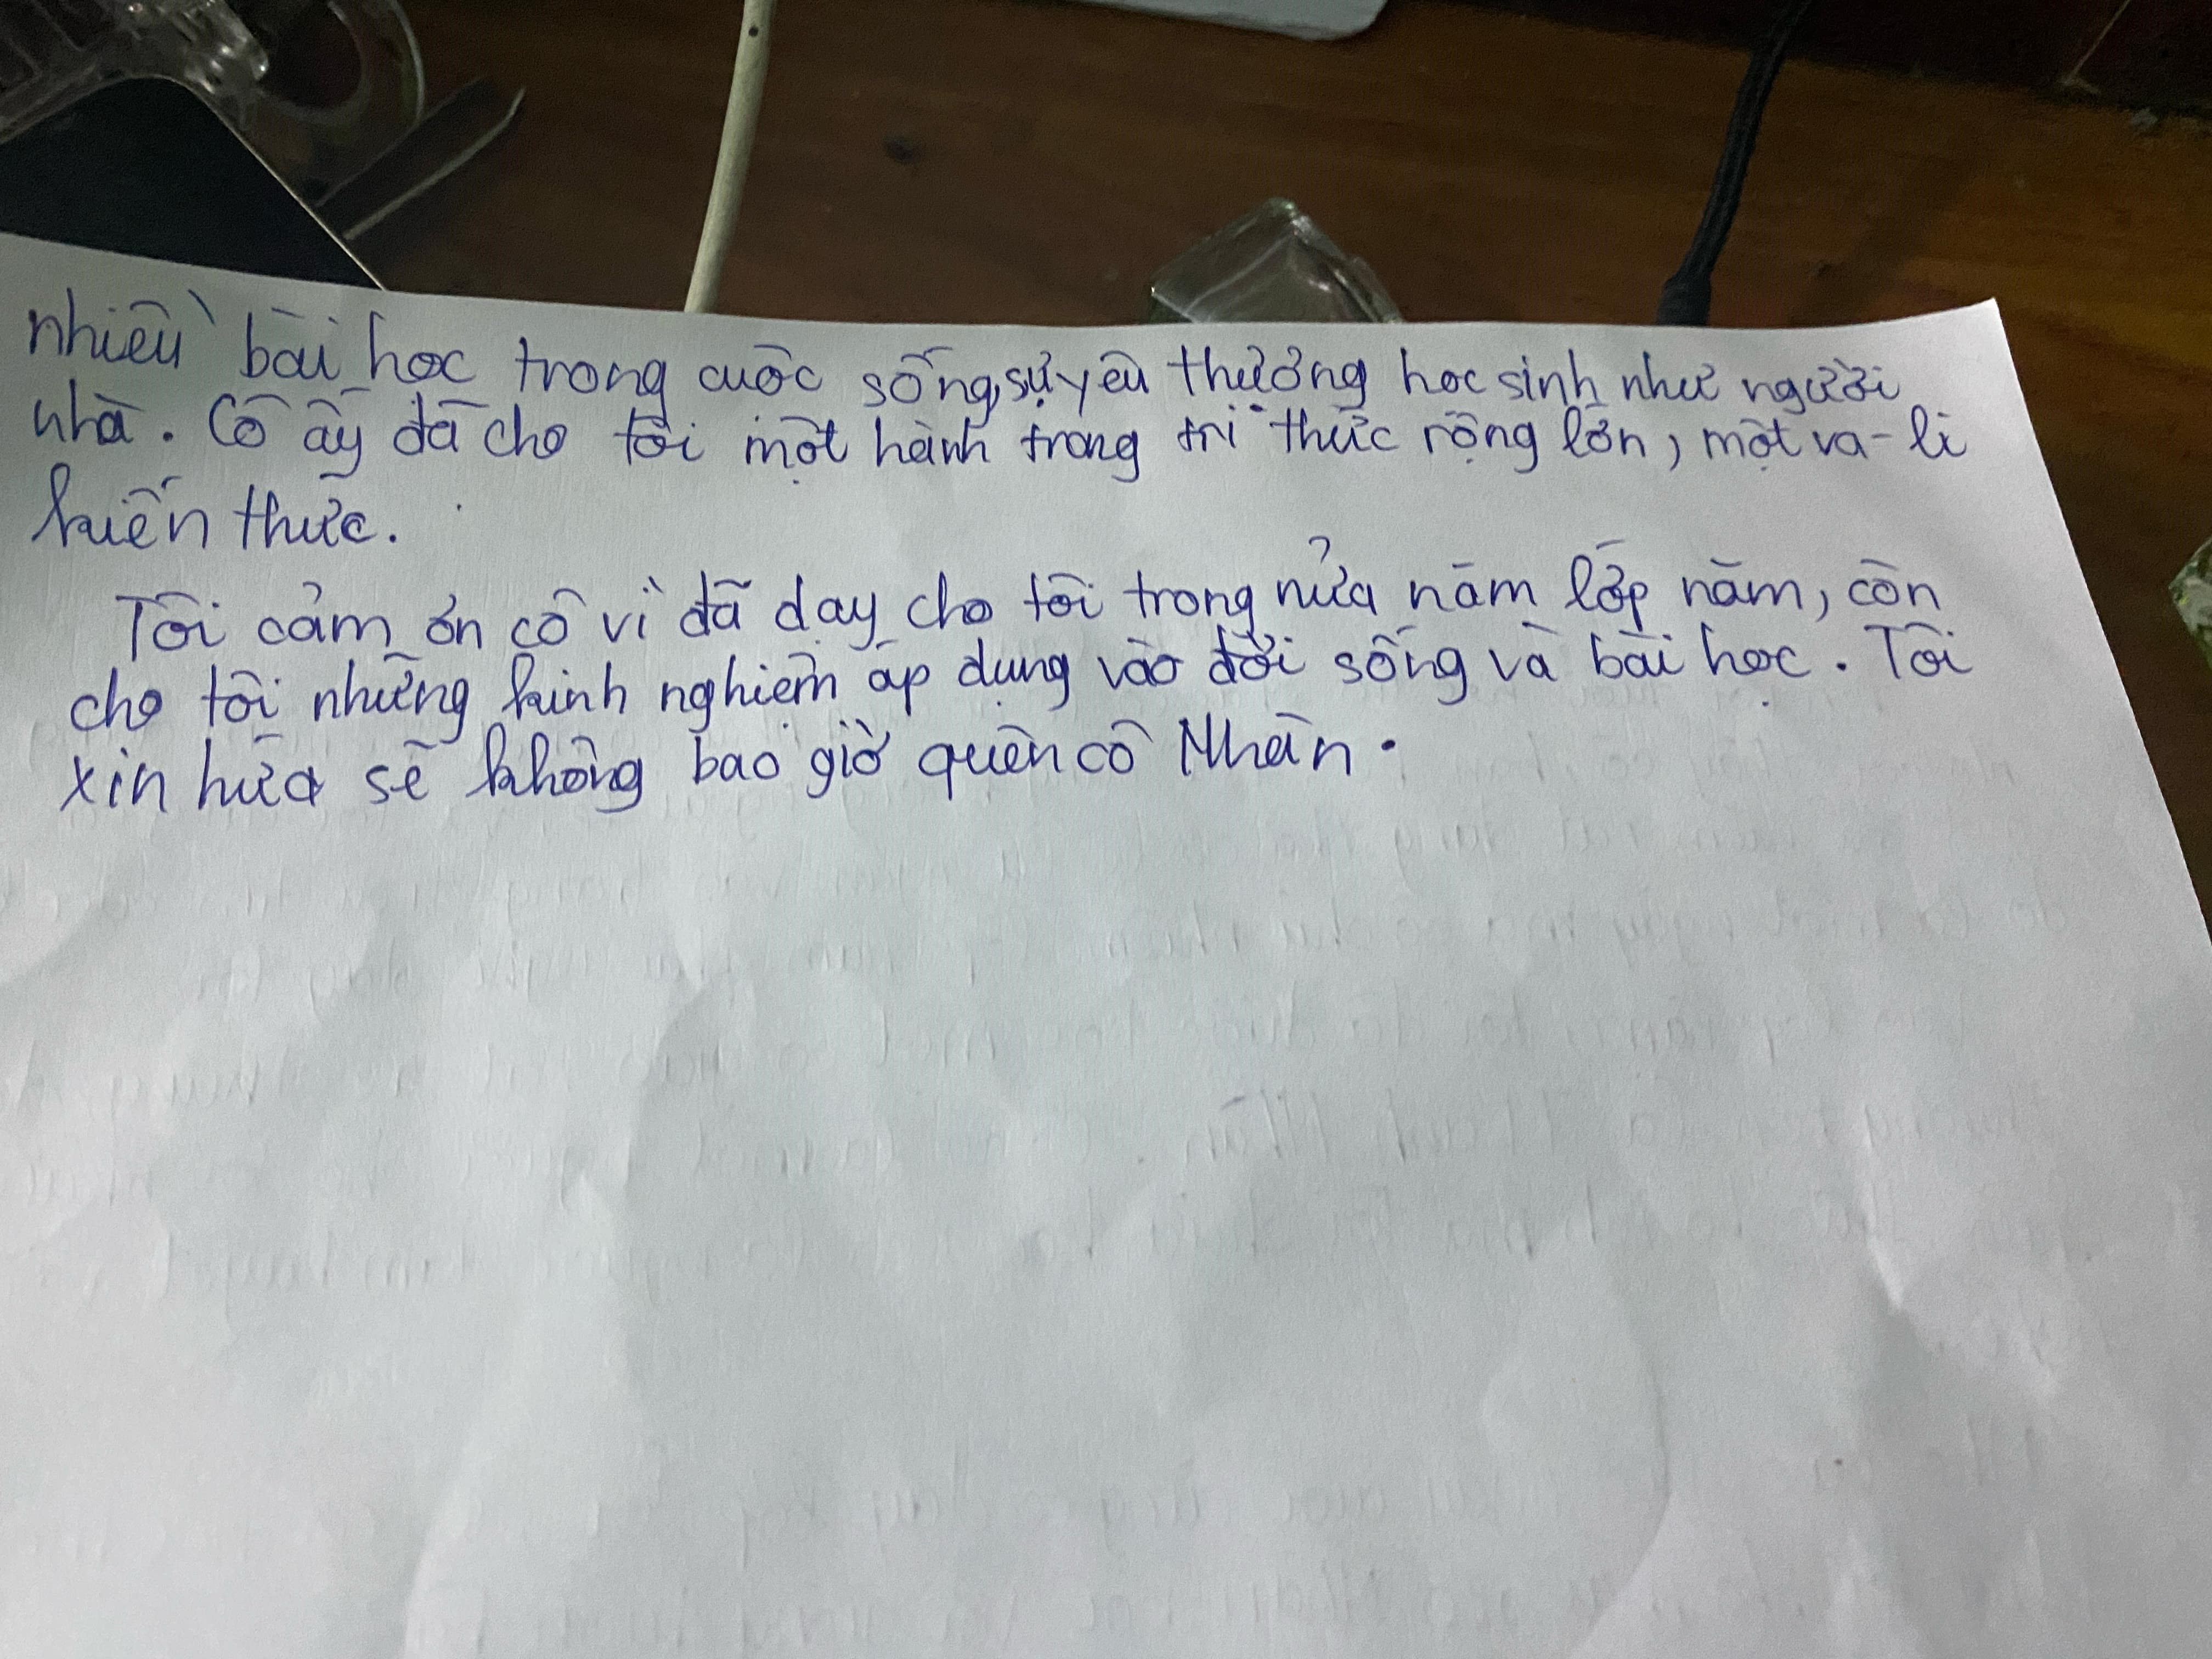 nhiều bài học trong cuộc sống, sự yêu thương học sinh như người
nhà. Cô ấy đã cho tôi một hành trang tri thức rộng lớn, một va-li
kiến thức.
Tôi cảm ơn cô vì đã dạy cho tôi trong nửa năm lớp năm, còn
cho tôi những kinh nghiệm áp dụng vào đời sống và bài học. Tôi
xin hứa sẽ không bao giờ quên cô Nhàn.